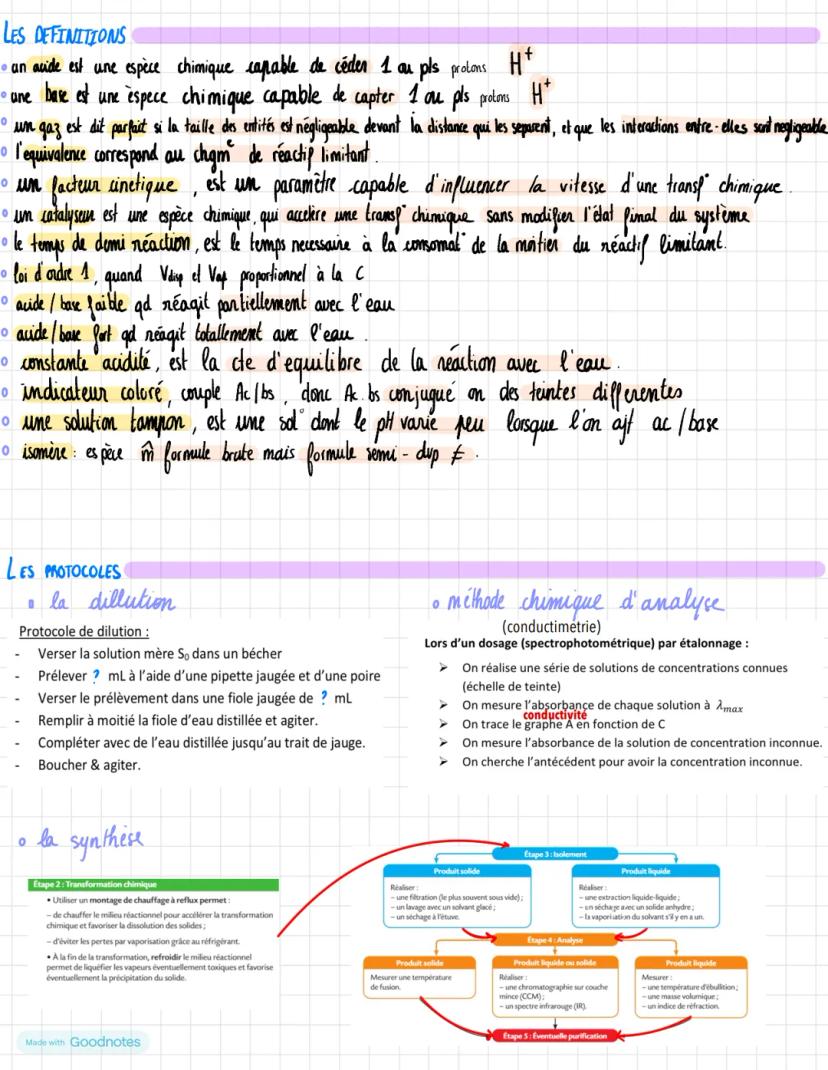 LES DEFINITIONS
• un acide est une espèce chimique capable de céder 1 ou pls protons H⁺
• une base est une espece chimique capable de capter 1 ou pls protons H⁺
• un gaz est dit parfait si la taille des entités est négligeable devant la distance qui les separent, et que les interactions entre-elles sont negligeable
• l'equivalence correspond au chgmᵗ de réactif limitant.
• un facteur cinetique, est un paramètre capable d'influencer la vitesse d'une transf° chimique.
• un catalyseur est une espèce chimique, qui accelère une transf° chimique sans modifier l'état final du système
• le temps de demi réaction, est le temps necessaire à la consomat° de la moitier du réactif limitant.
• loi d'ordre 1, quand Vdisp et Vap proportionnel à la C
• acide / base faible qd réagit partiellement avec l'eau
• acide / base fort qd réagit totallement avec l'eau.
• constante acidité, est la cte d'equilibre de la réaction avec l'eau.
• indicateur coloré, couple Ac/bs, donc Ac. bs conjugué on des teintes differentes
• une solution tampon, est une sol° dont le pH varie peu lorsque l'on ajt ac / base
• isomère : espèce m̂ formule brute mais formule semi-dvp ≠.
LES PROTOCOLES
• la dillution
Protocole de dilution :
- Verser la solution mère S₀ dans un bécher
- Prélever ? mL à l'aide d'une pipette jaugée et d'une poire
- Verser le prélèvement dans une fiole jaugée de ? mL
- Remplir à moitié la fiole d'eau distillée et agiter.
- Compléter avec de l'eau distillée jusqu'au trait de jauge.
- Boucher & agiter.
• méthode chimique d'analyse
(conductimetrie)
Lors d'un dosage (spectrophotométrique) par étalonnage :
➤ On réalise une série de solutions de concentrations connues
(échelle de teinte)
➤ On mesure l'absorbance de chaque solution à λmax
conductivité
➤ On trace le graphe A en fonction de C
➤ On mesure l'absorbance de la solution de concentration inconnue.
➤ On cherche l'antécédent pour avoir la concentration inconnue.
• la synthèse
Étape 2 : Transformation chimique
• Utiliser un montage de chauffage à reflux permet :
– de chauffer le milieu réactionnel pour accélérer la transformation
chimique et favoriser la dissolution des solides ;
– d'éviter les pertes par vaporisation grâce au réfrigérant.
• À la fin de la transformation, refroidir le milieu réactionnel
permet de liquéfier les vapeurs éventuellement toxiques et favorise
éventuellement la précipitation du solide.
Étape 3 : Isolement
Produit solide
Réaliser :
– une filtration (le plus souvent sous vide) ;
– un lavage avec un solvant glacé ;
– un séchage à l'étuve.
Produit liquide
Réaliser :
– une extraction liquide-liquide ;
– un séchage avec un solide anhydre ;
– la vaporisation du solvant s'il y en a un.
Étape 4 : Analyse
Produit solide
Mesurer une température
de fusion.
Produit liquide ou solide
Réaliser :
– une chromatographie sur couche
mince (CCM) ;
– un spectre infrarouge (IR).
Produit liquide
Mesurer :
– une température d'ébullition ;
– une masse volumique ;
– un indice de réfraction.
Étape 5 : Éventuelle purification
Made with Goodnotes